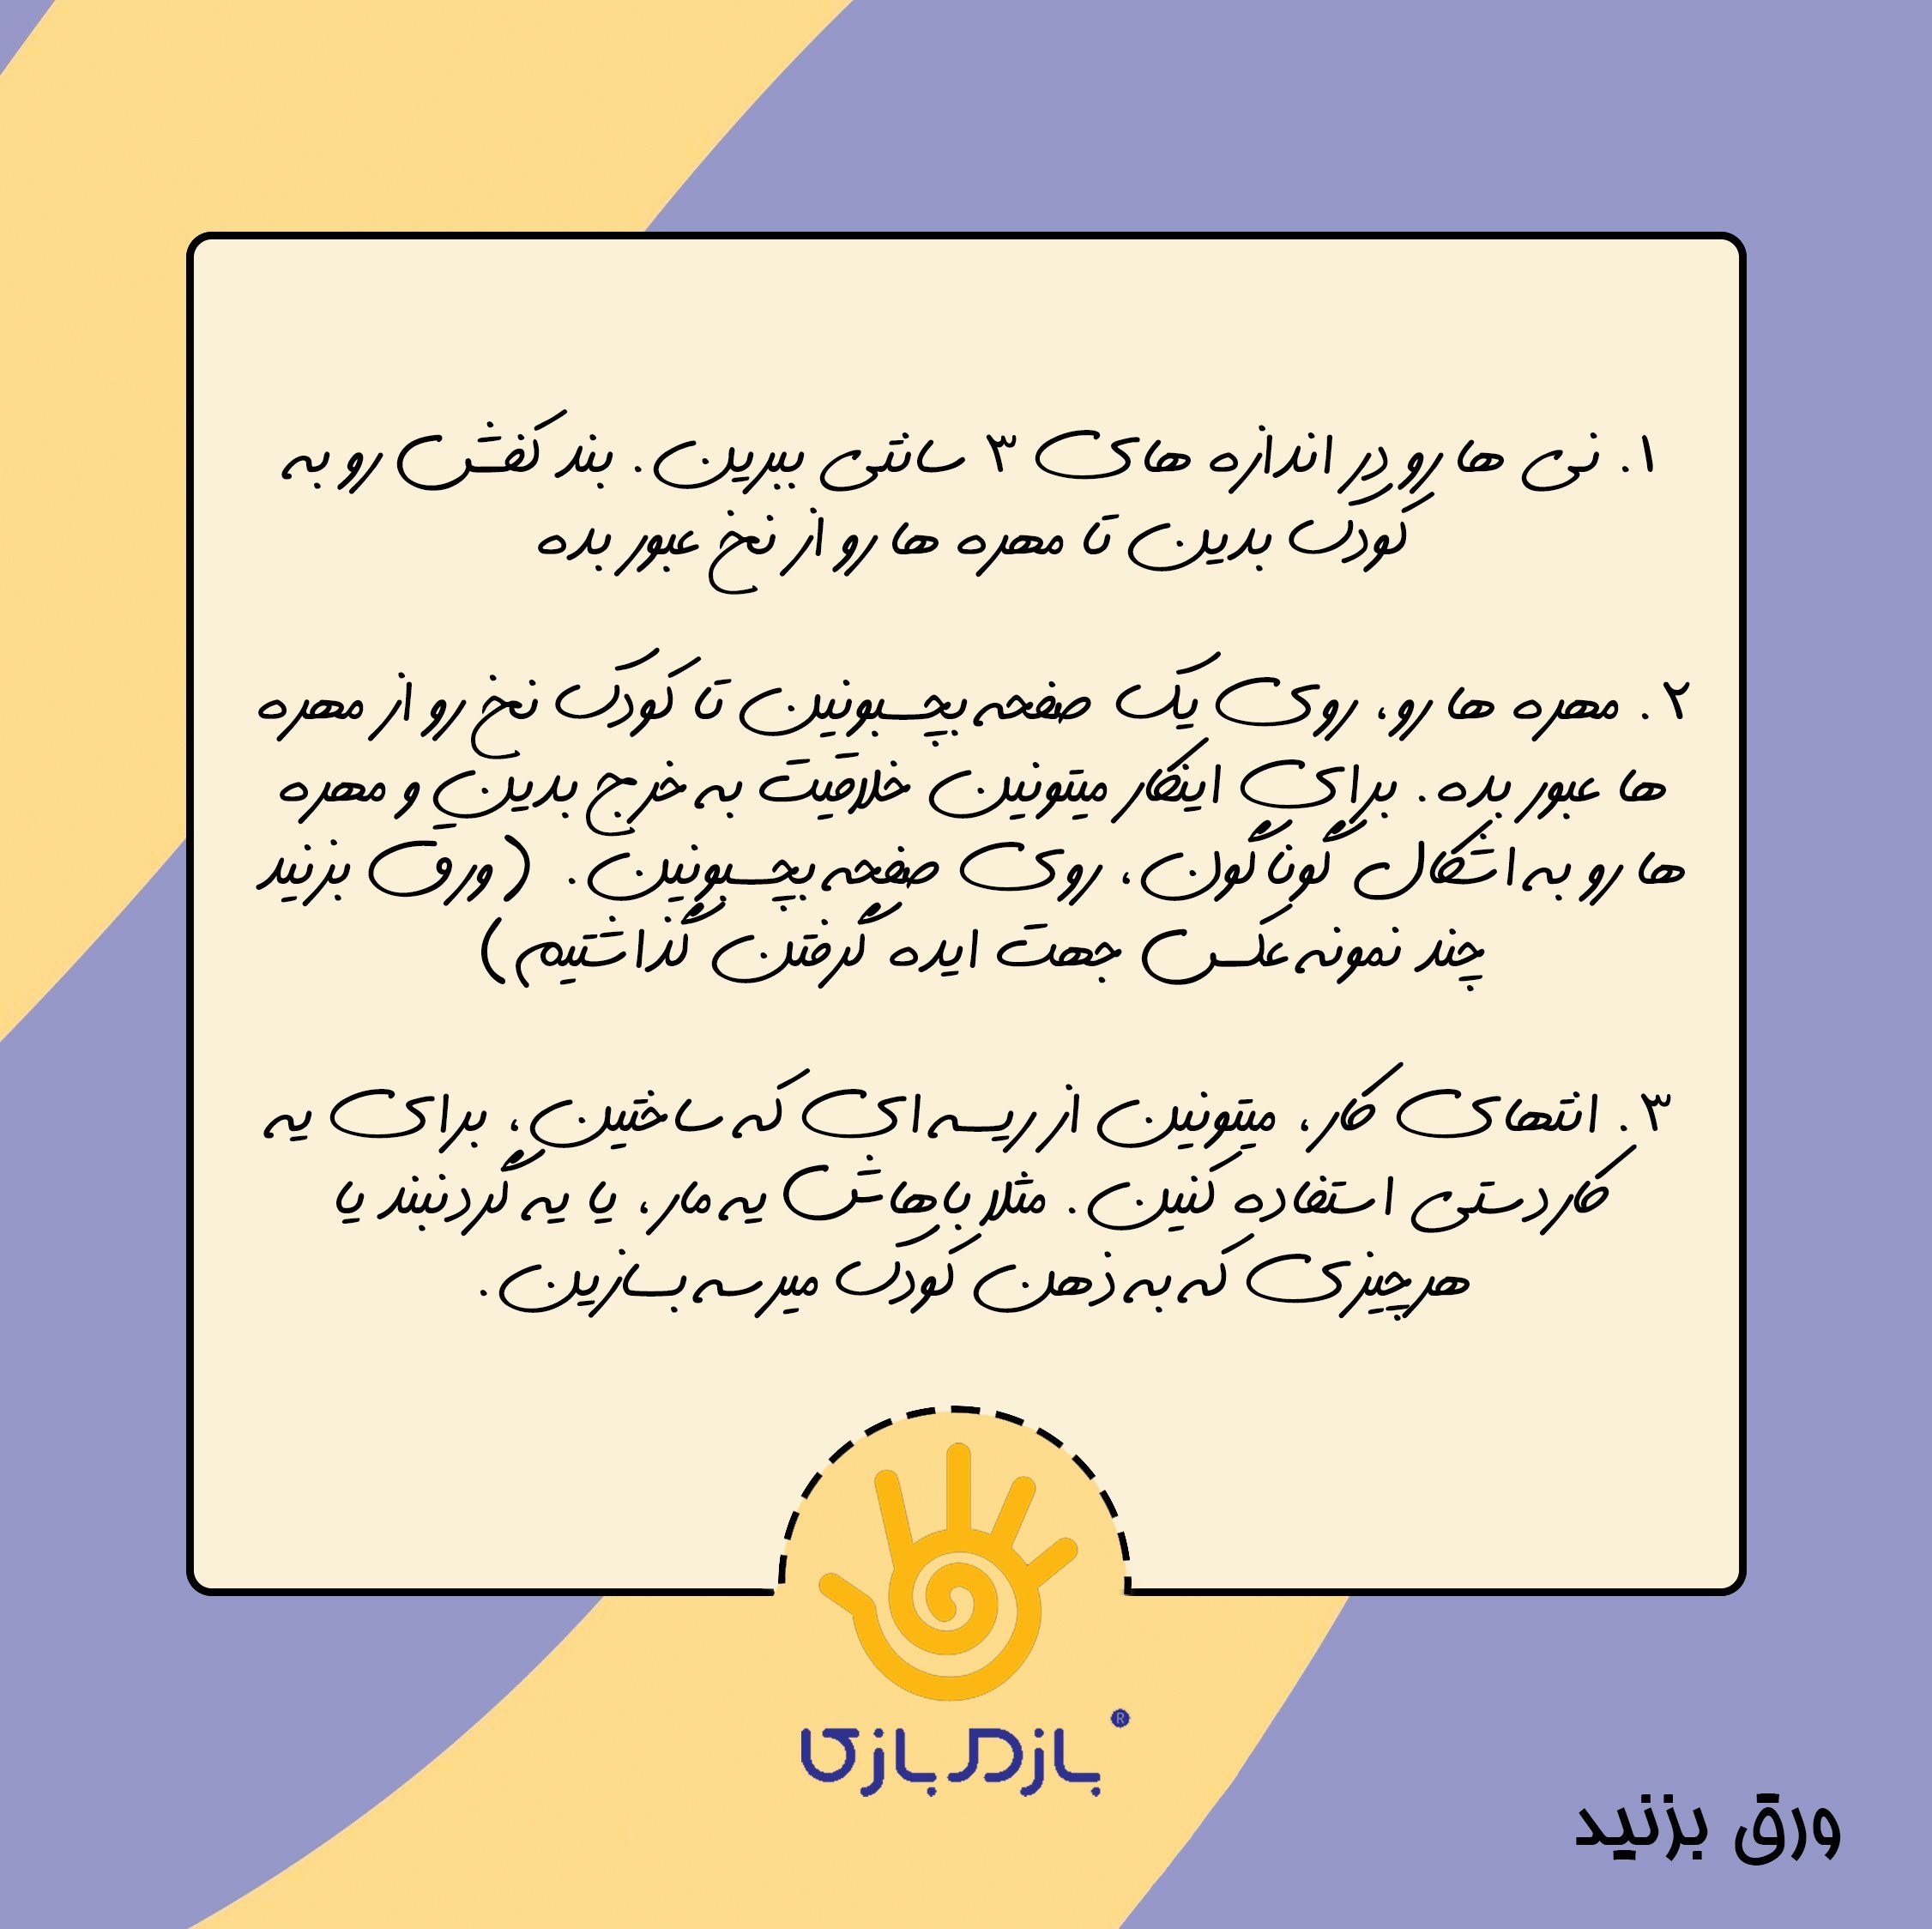 ۱. نی ها رو در اندازه های ۳ سانتی ببرین. بند کفش رو به
کودک بدین تا مهره ها رو از نخ عبور بده
۲. مهره ها رو، روی یک صفحه بچسبونین تا کودک نخ رو از مهره
ها عبور بده. برای اینکار میتونین خلاقیت به خرج بدین و مهره
ها رو به اشکال گوناگون، روی صفحه بچسبونین. (ورق بزنید
چند نمونه عکس جهت ایده گرفتن گذاشتیم)
۳. انتهای کار، میتونین از ریسه ای که ساختین، برای یه
کاردستی استفاده کنین. مثلا باهاش یه مار، یا یه گردنبند یا
هرچیزی که به ذهن کودک میرسه بسازین.
بازی بازی®
ورق بزنید